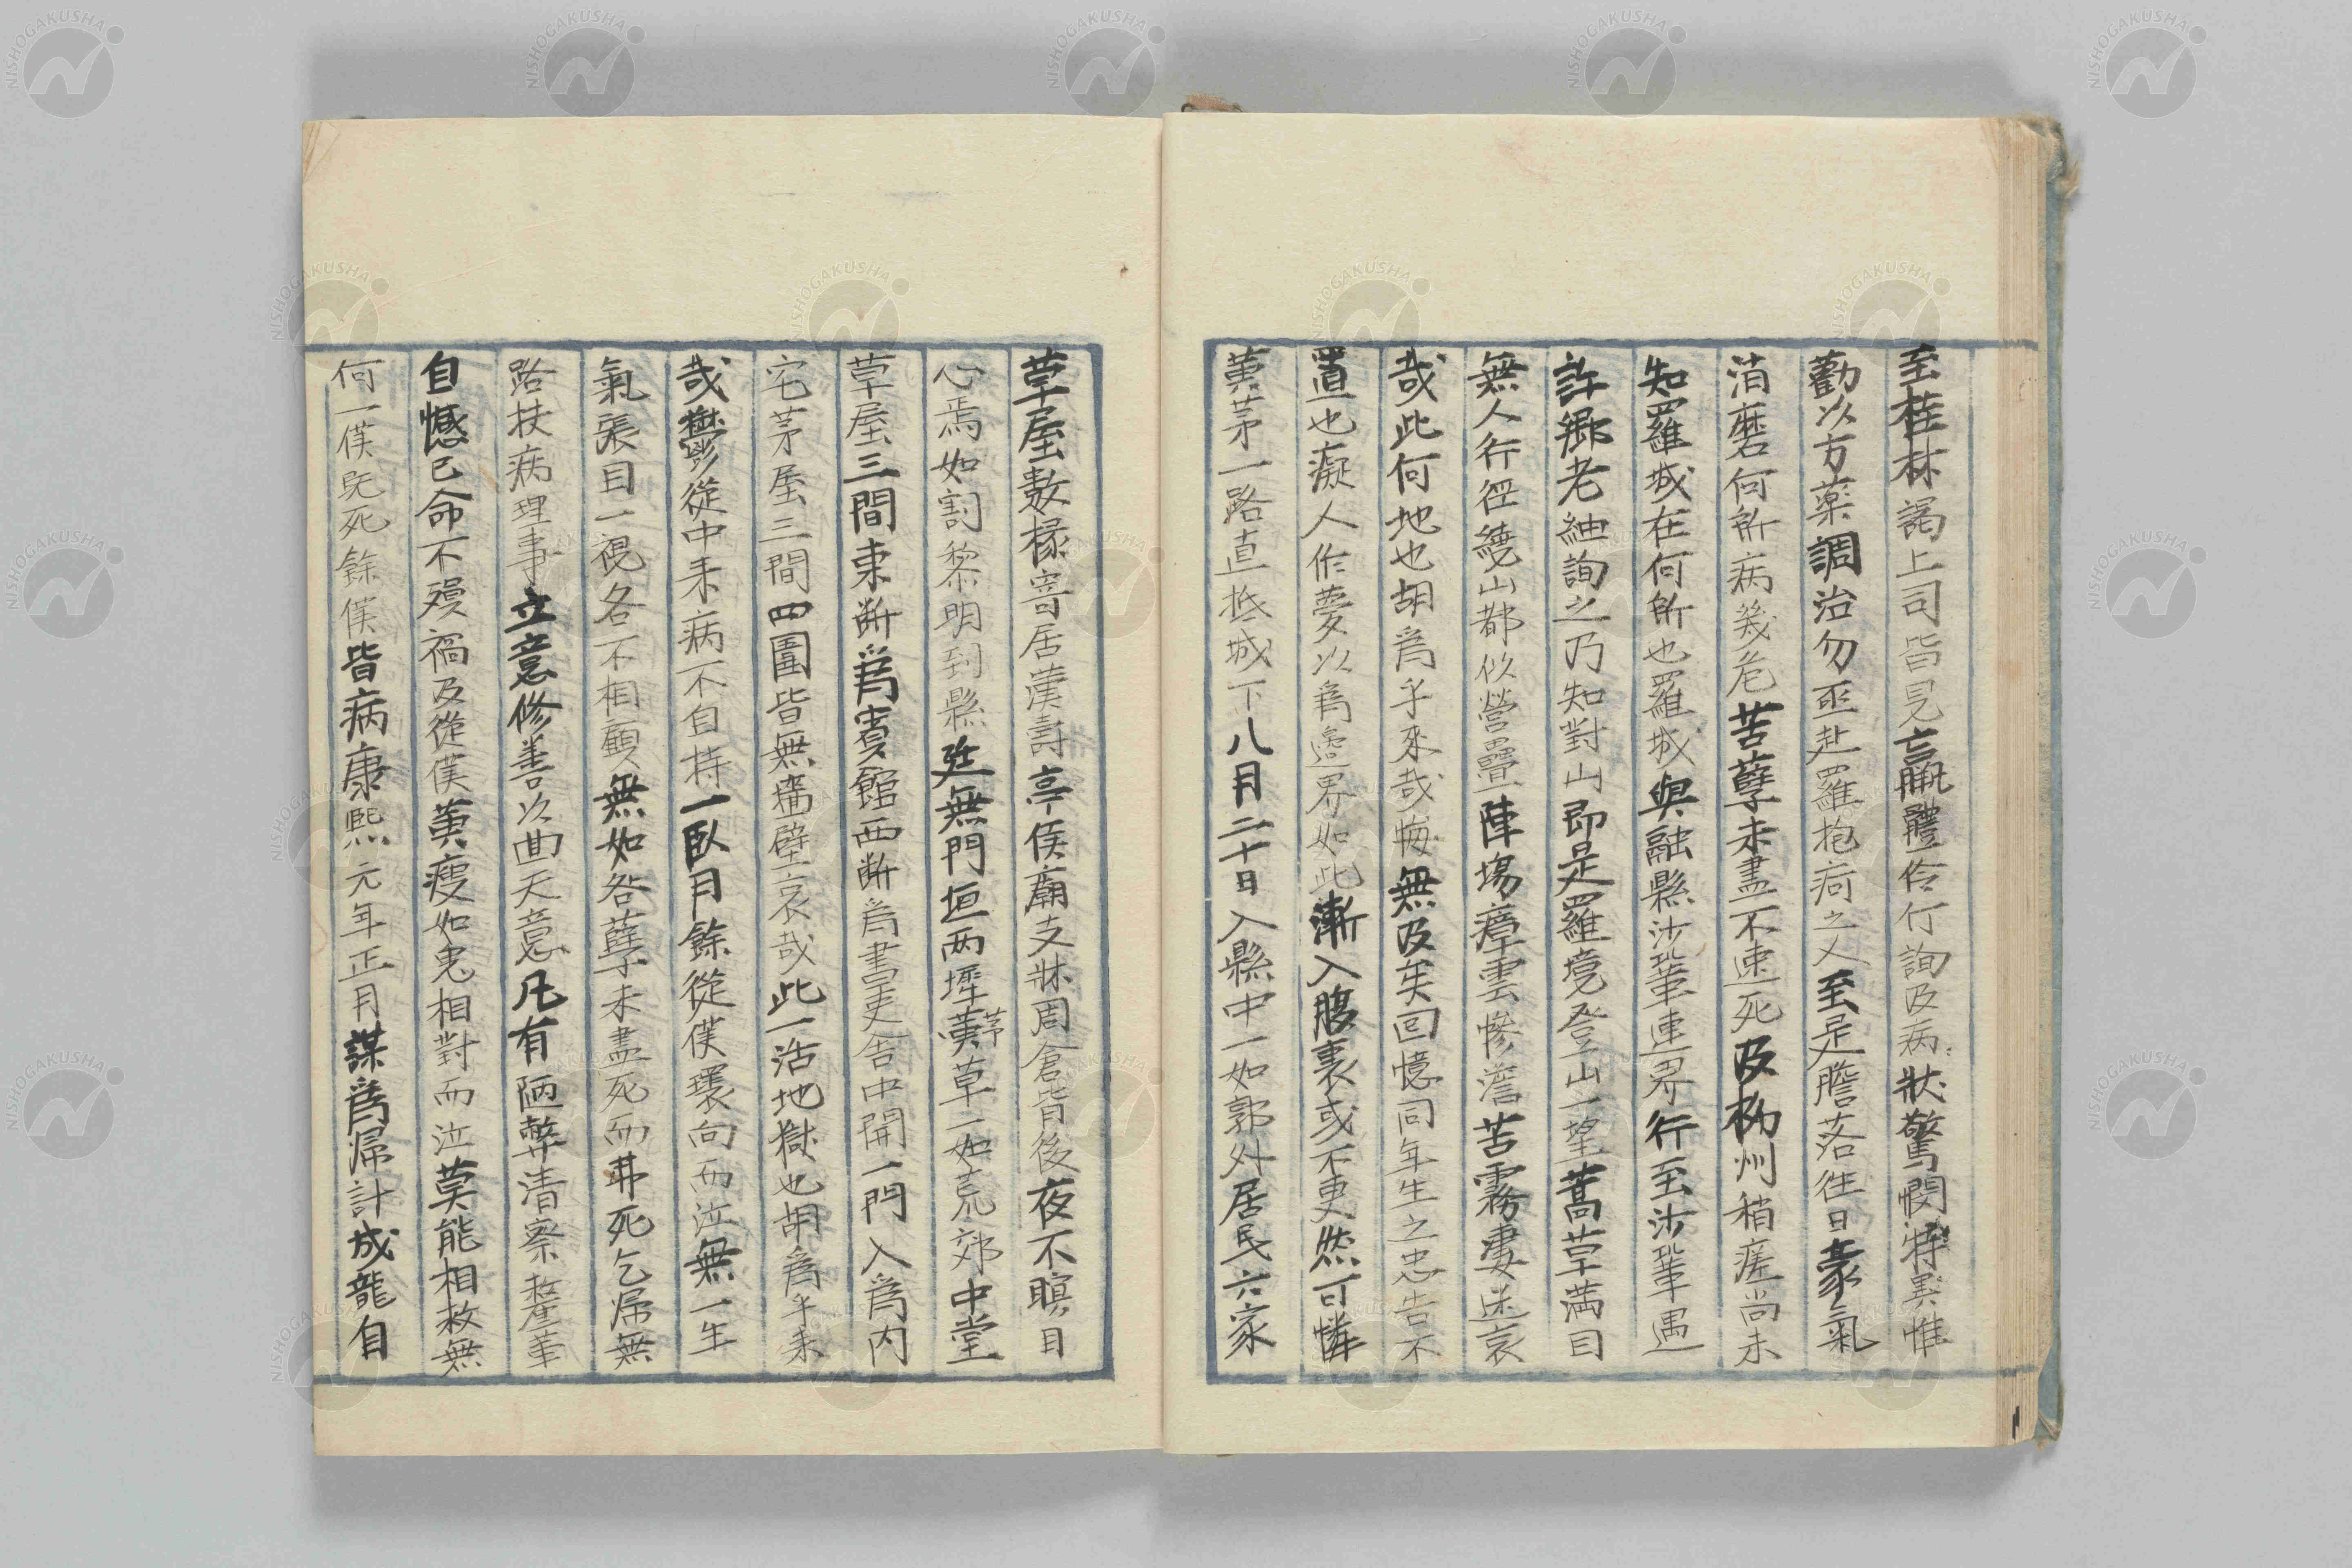 至桂林謁上司皆見羸體伶仃詢及病狀驚憫特異惟
勸以方藥調治勿亟赴羅抱疴之人至是膽落往日豪氣
消磨何所病幾危苦孽未盡不速死及柳州稍痊尚未
知羅城在何所也羅城與融縣沙鞏連界行至沙鞏遇
許鄉老紬詢之乃知對山即是羅境登山一望蒿草滿目
無人行徑繞山都似營疊陣場瘴雲慘澹苦霧凄迷哀
哉此何地也胡爲乎來哉悔無及矣回憶同年生之忠告不
置也癡人作夢以爲邊界如此漸入腹裏或不更然可憐
黃茅一路直抵城下八月二十日入縣中一如郭外居民六家
草屋數椽寄居漢壽亭侯廟支牀周倉背後夜不瞑目
心焉如割黎明到縣廷無門垣兩墀黃茅草一如荒郊中堂
草屋三間東斷爲賓館西斷爲書吏舍中開一門入爲内
宅茅屋三間四圍皆無牆壁哀哉此一活地獄也胡爲乎來
哉鬱從中來病不自持一臥月餘從僕環向而泣無一生
氣張目一視各不相顧無如咎孽未盡死而弗死乞歸無
路扶病理事立意修善以回天意凡有陋弊清察釐革
自憾已命不殞禍及從僕黃瘦如鬼相對而泣莫能相救無
何一僕既死餘僕皆病康熙元年正月謀爲歸計成龍自
NISHOGAKUSHA